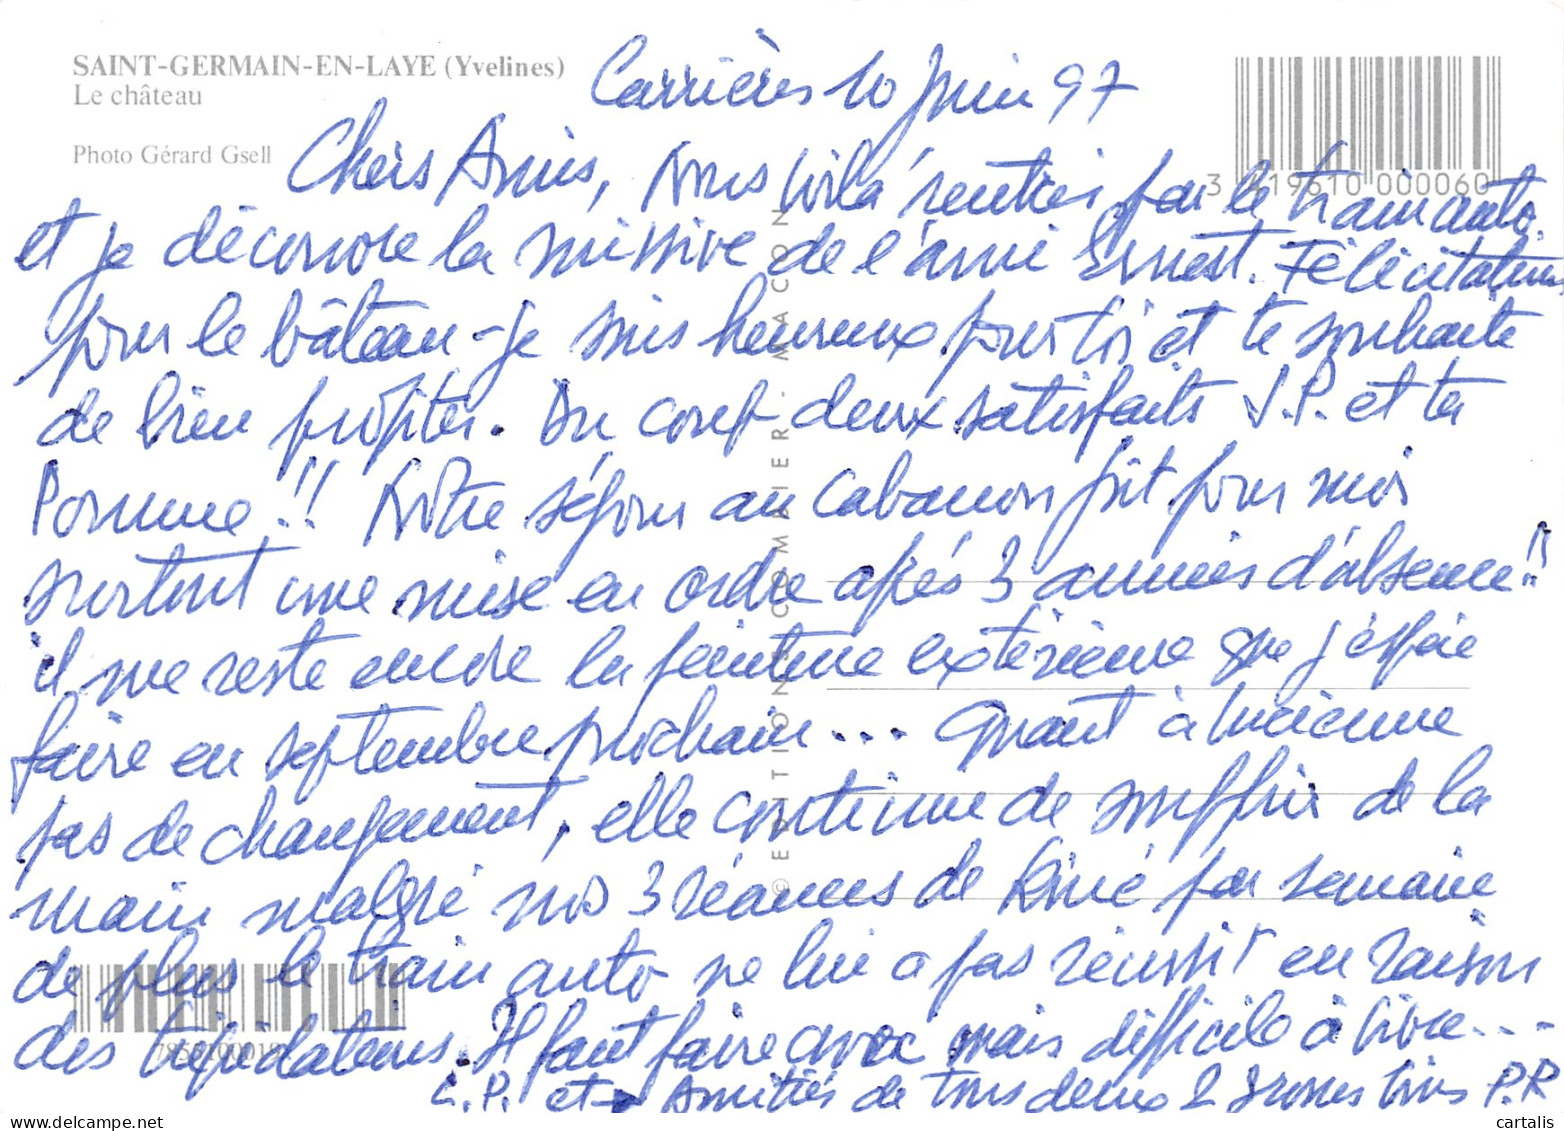 SAINT-GERMAIN-EN-LAYE (Yvelines)
Le château
Photo Gérard Gsell
Carrières 10 Juin 97
3 419610 000060
Chers Amis, Nous voilà rentrés par le train auto.
et je découvre la missive de l'ami Ernest. Félicitations
pour le bâteau - je suis heureux pour toi et te souhaite
de bien profiter. Du coup deux satisfaits J.P. et ta
Pomme!! Notre séjour au cabanon fût pour moi
surtout une mise en ordre après 3 années d'absence!!
il me reste encore la peinture extérieure que j'espère
faire en septembre prochain... Quant à Lucienne
pas de changement, elle continue de souffrir de la
main malgré nos 3 séances de Kiné par semaine
de plus le train auto ne lui a pas réussit en raison
des trépidations. Il faut faire avec mais difficile à vivre...
L.P. et Amitiés de tous deux 2 Grosses bises P.R
© EDITIONS COMBIER - MACON
www.delcampe.net
cartalis